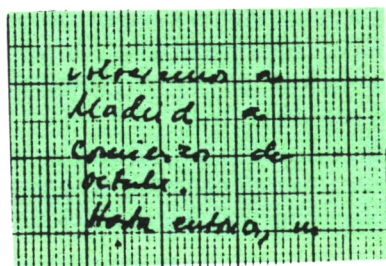 volveremos a
Madrid a
comienzos de
octubre.
Hasta entonces, un